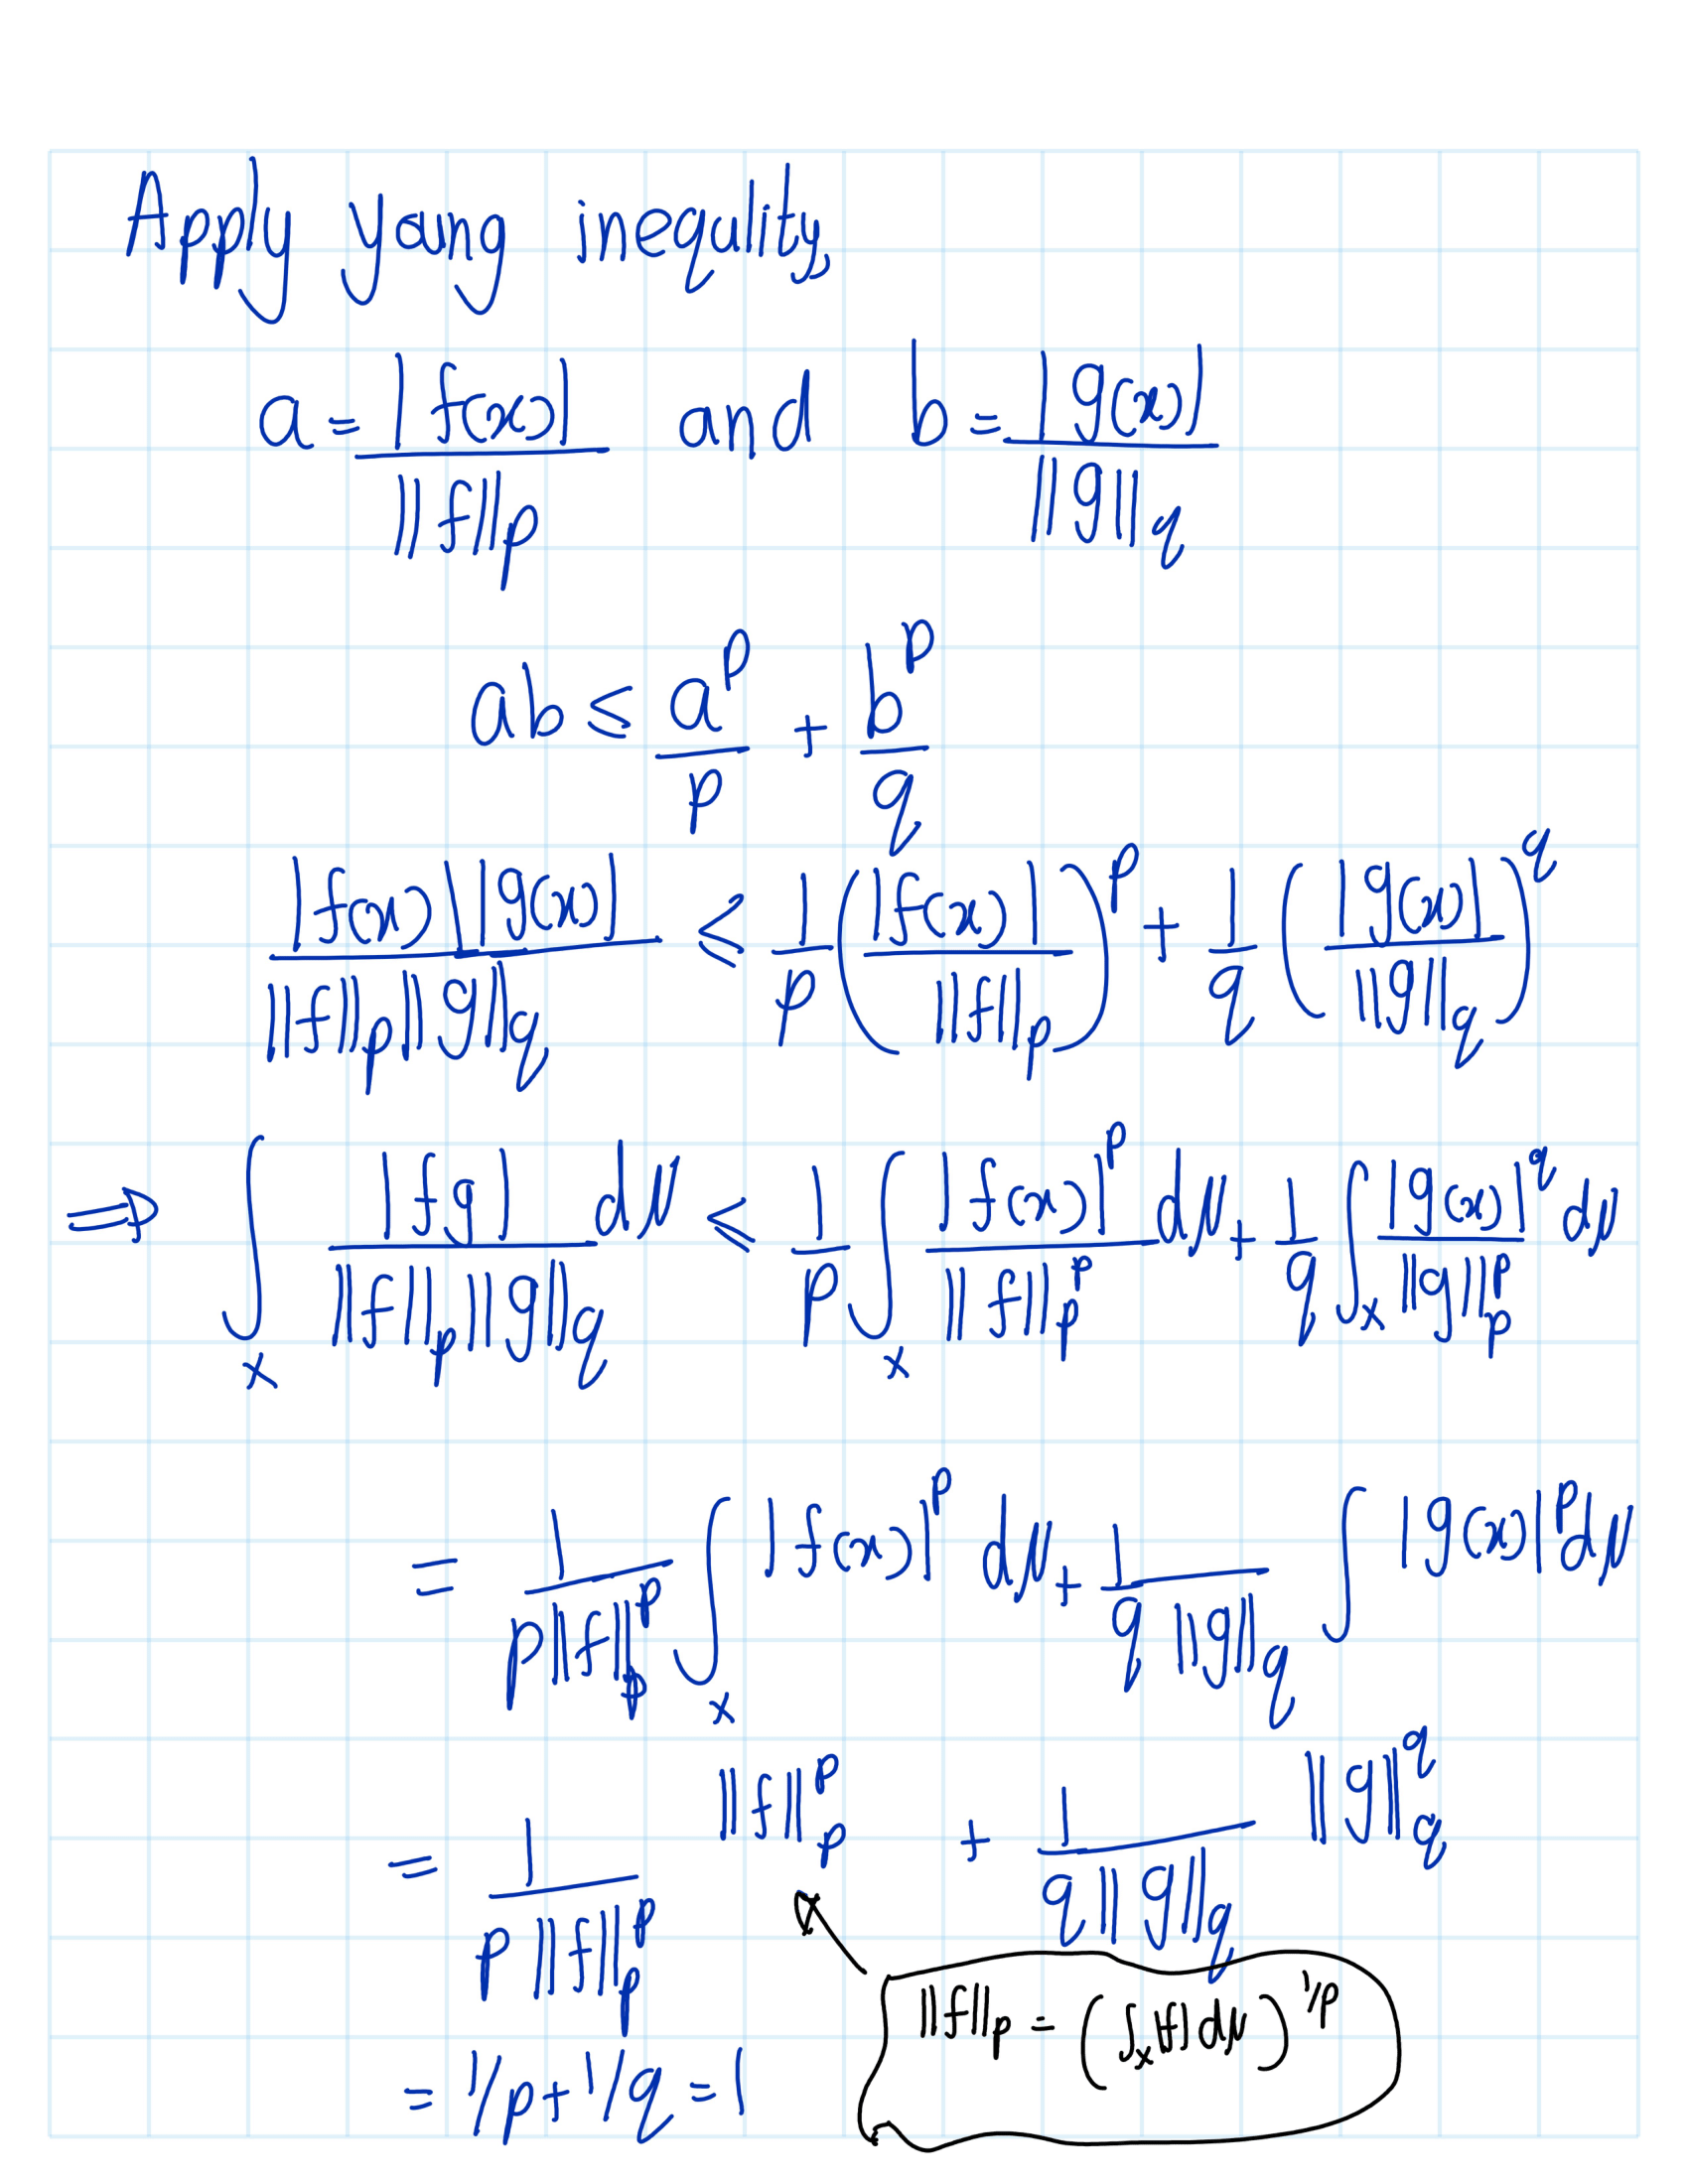 Apply yang inequality,
a = |f(x)| / ||f||_p and b = |g(x)| / ||g||_q
ab ≤ a^p / p + b^p / q
|f(x)||g(x)| / ||f||_p ||g||_q ≤ 1/p (|f(x)| / ||f||_p)^p + 1/q (|g(x)| / ||g||_q)^q
⇒ ∫_x |fg| / ||f||_p ||g||_q dμ ≤ 1/p ∫_x |f(x)|^p / ||f||_p^p dμ + 1/q ∫_x |g(x)|^q / ||g||_p^p dμ
= 1 / p||f||_p^p ∫_x |f(x)|^p dμ + 1 / q ||g||_q ∫ |g(x)|^p dμ
= 1 / p ||f||_p^p ||f||_p^p + 1 / q||g||_q ||g||_q^q
||f||_p = (∫_x |f| dμ)^1/p
= 1/p + 1/q = 1